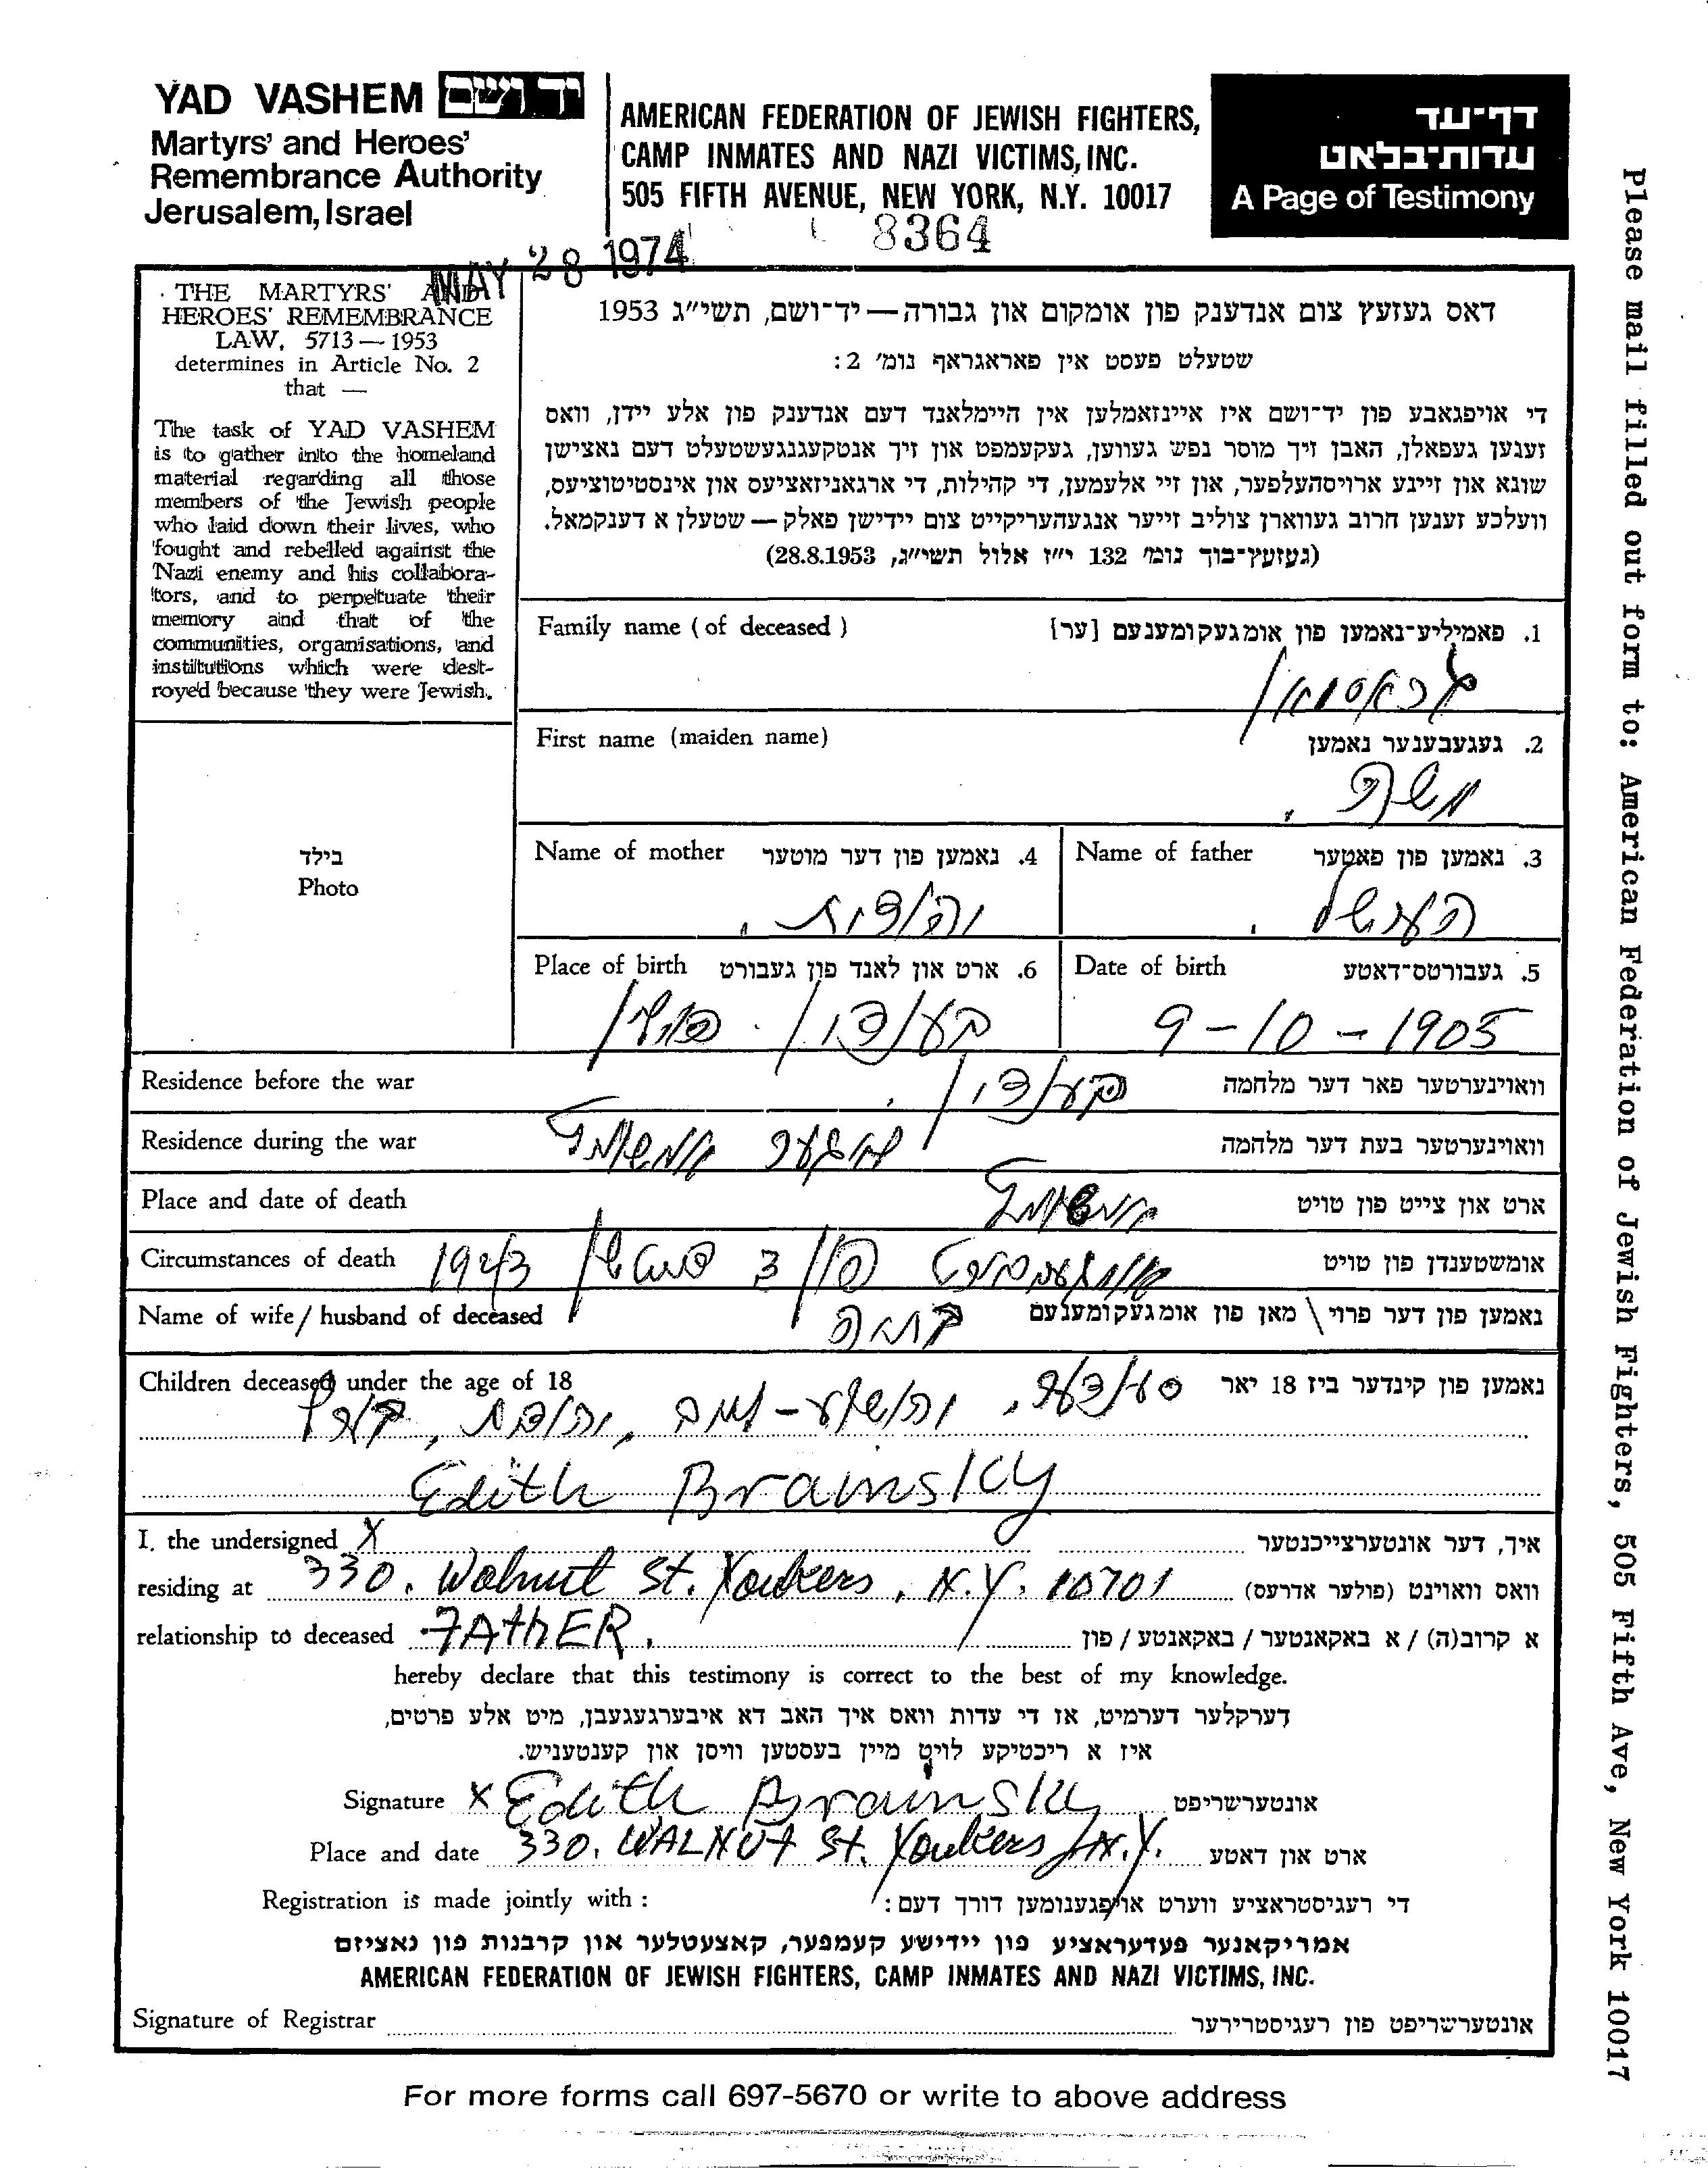 YAD VASHEM יד ושם
Martyrs' and Heroes'
Remembrance Authority
Jerusalem, Israel
AMERICAN FEDERATION OF JEWISH FIGHTERS,
CAMP INMATES AND NAZI VICTIMS, INC.
505 FIFTH AVENUE, NEW YORK, N.Y. 10017
8364
MAY 28 1974
דף־עד
עדות־בלאט
A Page of Testimony
Please mail filled out form to: American Federation of Jewish Fighters, 505 Fifth Ave, New York 10017
THE MARTYRS' AND
HEROES' REMEMBRANCE
LAW, 5713 — 1953
determines in Article No. 2
that —
The task of YAD VASHEM
is to gather into the homeland
material regarding all those
members of the Jewish people
who laid down their lives, who
fought and rebelled against the
Nazi enemy and his collabora-
tors, and to perpetuate their
memory and that of the
communities, organisations, and
institutions which were dest-
royed because they were Jewish.
דאס געזעץ צום אנדענק פון אומקום און גבורה — יד־ושם, תשי"ג 1953
שטעלט פעסט אין פאראגראף נומ' 2:
די אויפגאבע פון יד־ושם איז איינזאמלען אין היימלאנד דעם אנדענק פון אלע יידן, וואס
זענען געפאלן, האבן זיך מוסר נפש געווען, געקעמפט און זיך אנטקעגנגעשטעלט דעם נאצישן
שונא און זיינע ארויסהעלפער, און זיי אלעמען, די קהילות, די ארגאניזאציעס און אינסטיטוציעס,
וועלכע זענען חרוב געווארן צוליב זייער אנגעהעריקייט צום יידישן פאלק — שטעלן א דענקמאל.
(געזעץ־בוך נומ' 132 י"ז אלול תשי"ג, 28.8.1953)
Family name (of deceased) 1. פאמיליע־נאמען פון אומגעקומענעם [ער]
First name (maiden name) 2. געגעבענער נאמען
משה
בילד
Photo
Name of father 3. נאמען פון פאטער
העשל
Name of mother 4. נאמען פון דער מוטער
יהודית
Date of birth 5. געבורטס־דאטע
9-10-1905
Place of birth 6. ארט און לאנד פון געבורט
בענדין. פוילן
Residence before the war וואוינערטער פאר דער מלחמה
בענדין
Residence during the war וואוינערטער בעת דער מלחמה
לאגער אוישוויץ
Place and date of death ארט און צייט פון טויט
Circumstances of death אומשטענדן פון טויט
1943
Name of wife / husband of deceased נאמען פון דער פרוי \ מאן פון אומגעקומענעם
Children deceased under the age of 18 נאמען פון קינדער ביז 18 יאר
Edith Brainsky
I. the undersigned X איך, דער אונטערצייכנטער
residing at 330. Walnut St. Yonkers, N.Y. 10701 וואס וואוינט (פולער אדרעס)
relationship to deceased FAthER. א קרוב(ה) / א באקאנטער / באקאנטע / פון
hereby declare that this testimony is correct to the best of my knowledge.
דערקלער דערמיט, אז די עדות וואס איך האב דא איבערגעגעבן, מיט אלע פרטים,
איז א ריכטיקע לויט מיין בעסטען וויסן און קענטעניש.
Signature X Edith Brainsky אונטערשריפט
Place and date 330. WALNUT St. Yonkers N.Y. ארט און דאטע
Registration is made jointly with : די רעגיסטראציע ווערט אויפגענומען דורך דעם:
אמריקאנער פעדעראציע פון יידישע קעמפער, קאצעטלער און קרבנות פון נאציזם
AMERICAN FEDERATION OF JEWISH FIGHTERS, CAMP INMATES AND NAZI VICTIMS, INC.
Signature of Registrar אונטערשריפט פון רעגיסטרירער
For more forms call 697-5670 or write to above address